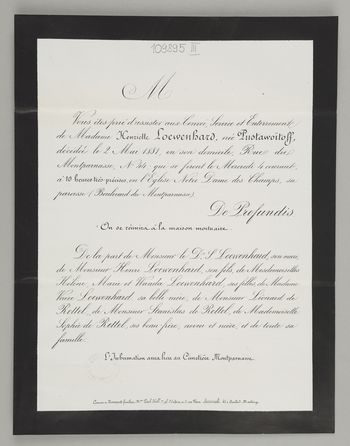 109895 III
M
Vous êtes prié d'assister aux Convoi, Service et Enterrement
de Madame Henriette Loewenhard, née Pustawoitoff,
décédée le 2 Mai 1881, en son domicile, Rue du
Montparnasse, N° 34, qui se feront le Mercredi 4 courant,
à 10 heures très précises, en l'Église Notre Dame des Champs, sa
paroisse (Boulevard du Montparnasse).
De Profundis
On se réunira à la maison mortuaire.
De la part de Monsieur le Dr. S. Loewenhard, son mari,
de Monsieur Henri Loewenhard, son fils, de Mesdemoiselles
Hélène, Marie et Wanda Loewenhard, ses filles, de Madame
Veuve Loewenhard sa belle mère, de Monsieur Léonard de
Rettel, de Monsieur Stanislas de Rettel, de Mademoiselle
Sophie de Rettel, ses beau frère, neveu et nièce, et de toute sa
famille.
L'Inhumation aura lieu au Cimetière Montparnasse.